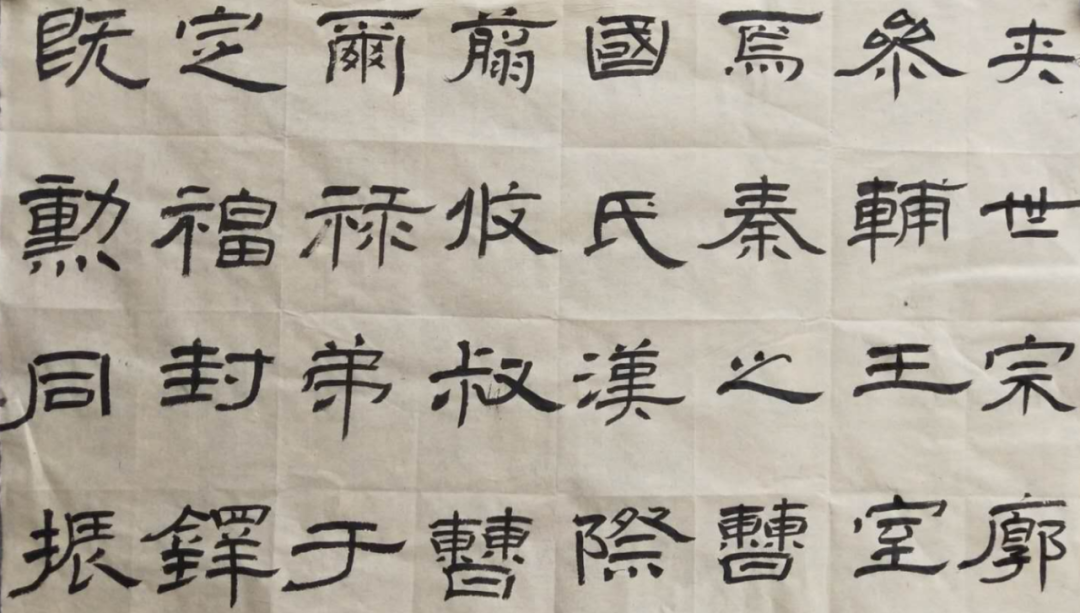 既定爾翦國焉參夾
勳福祿攸氏秦輔世
同封弟叔漢之王宗
振鐸于曹際曹室廓